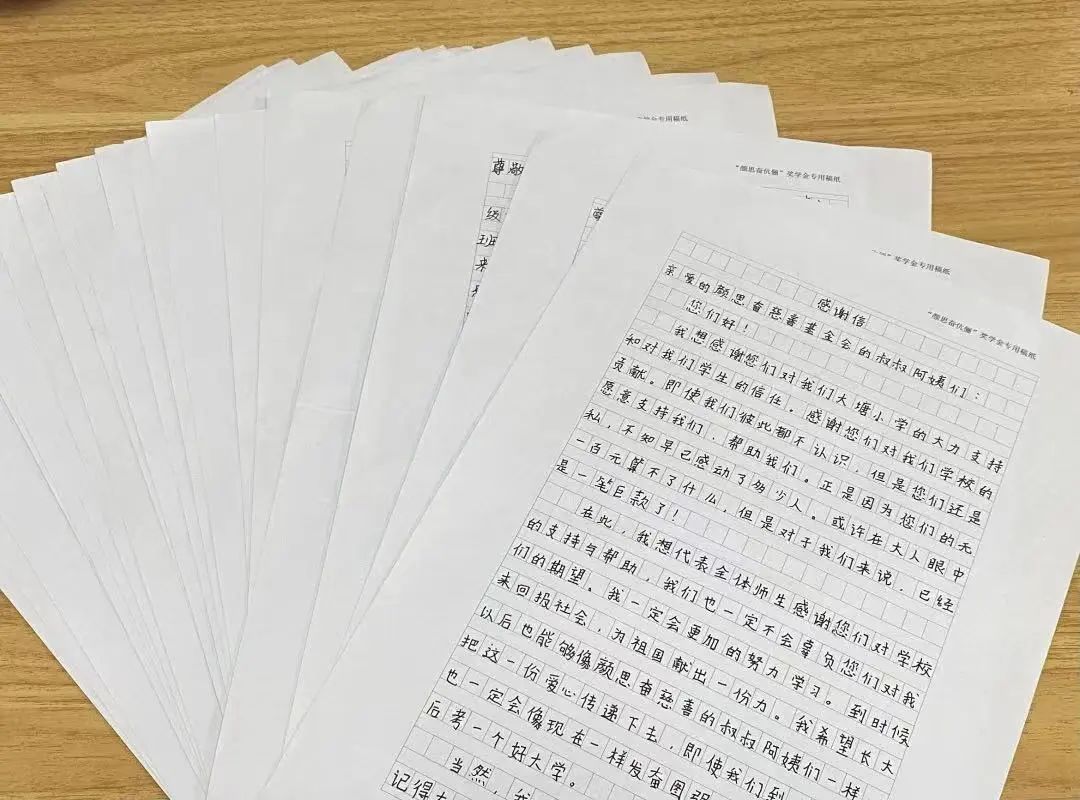 金专用稿纸
尊敬
级
班
来
"颜思奋伉俪"奖学金专用稿纸
"奖学金专用稿纸
"颜思奋伉俪"奖学金专用稿纸
感谢信
亲爱的颜思奋慈善基金会的叔叔阿姨们：
您们好！
我想感谢您们对我们大塘小学的大力支持
和对我们学生的信任。感谢您们对我们学校的
贡献。即使我们彼此都不认识，但是您们还是
愿意支持我们，帮助我们。正是因为您们的无
私，不知早已感动了多少人。或许在大人眼中
一百元算不了什么，但是对于我们来说，已经
是一笔巨款了！
在此，我想代表全体师生感谢您们对学校
的支持与帮助，我们也一定不会辜负您们对我
们的期望。我一定会更加的努力学习。到时候
来回报社会，为祖国献出一份力。我希望长大
以后也能够像颜思奋慈善的叔叔阿姨们一样
把这一份爱心传递下去，即使我们到
也一定会像现在一样发奋图强
后考一个好大学。
当然，我
记得